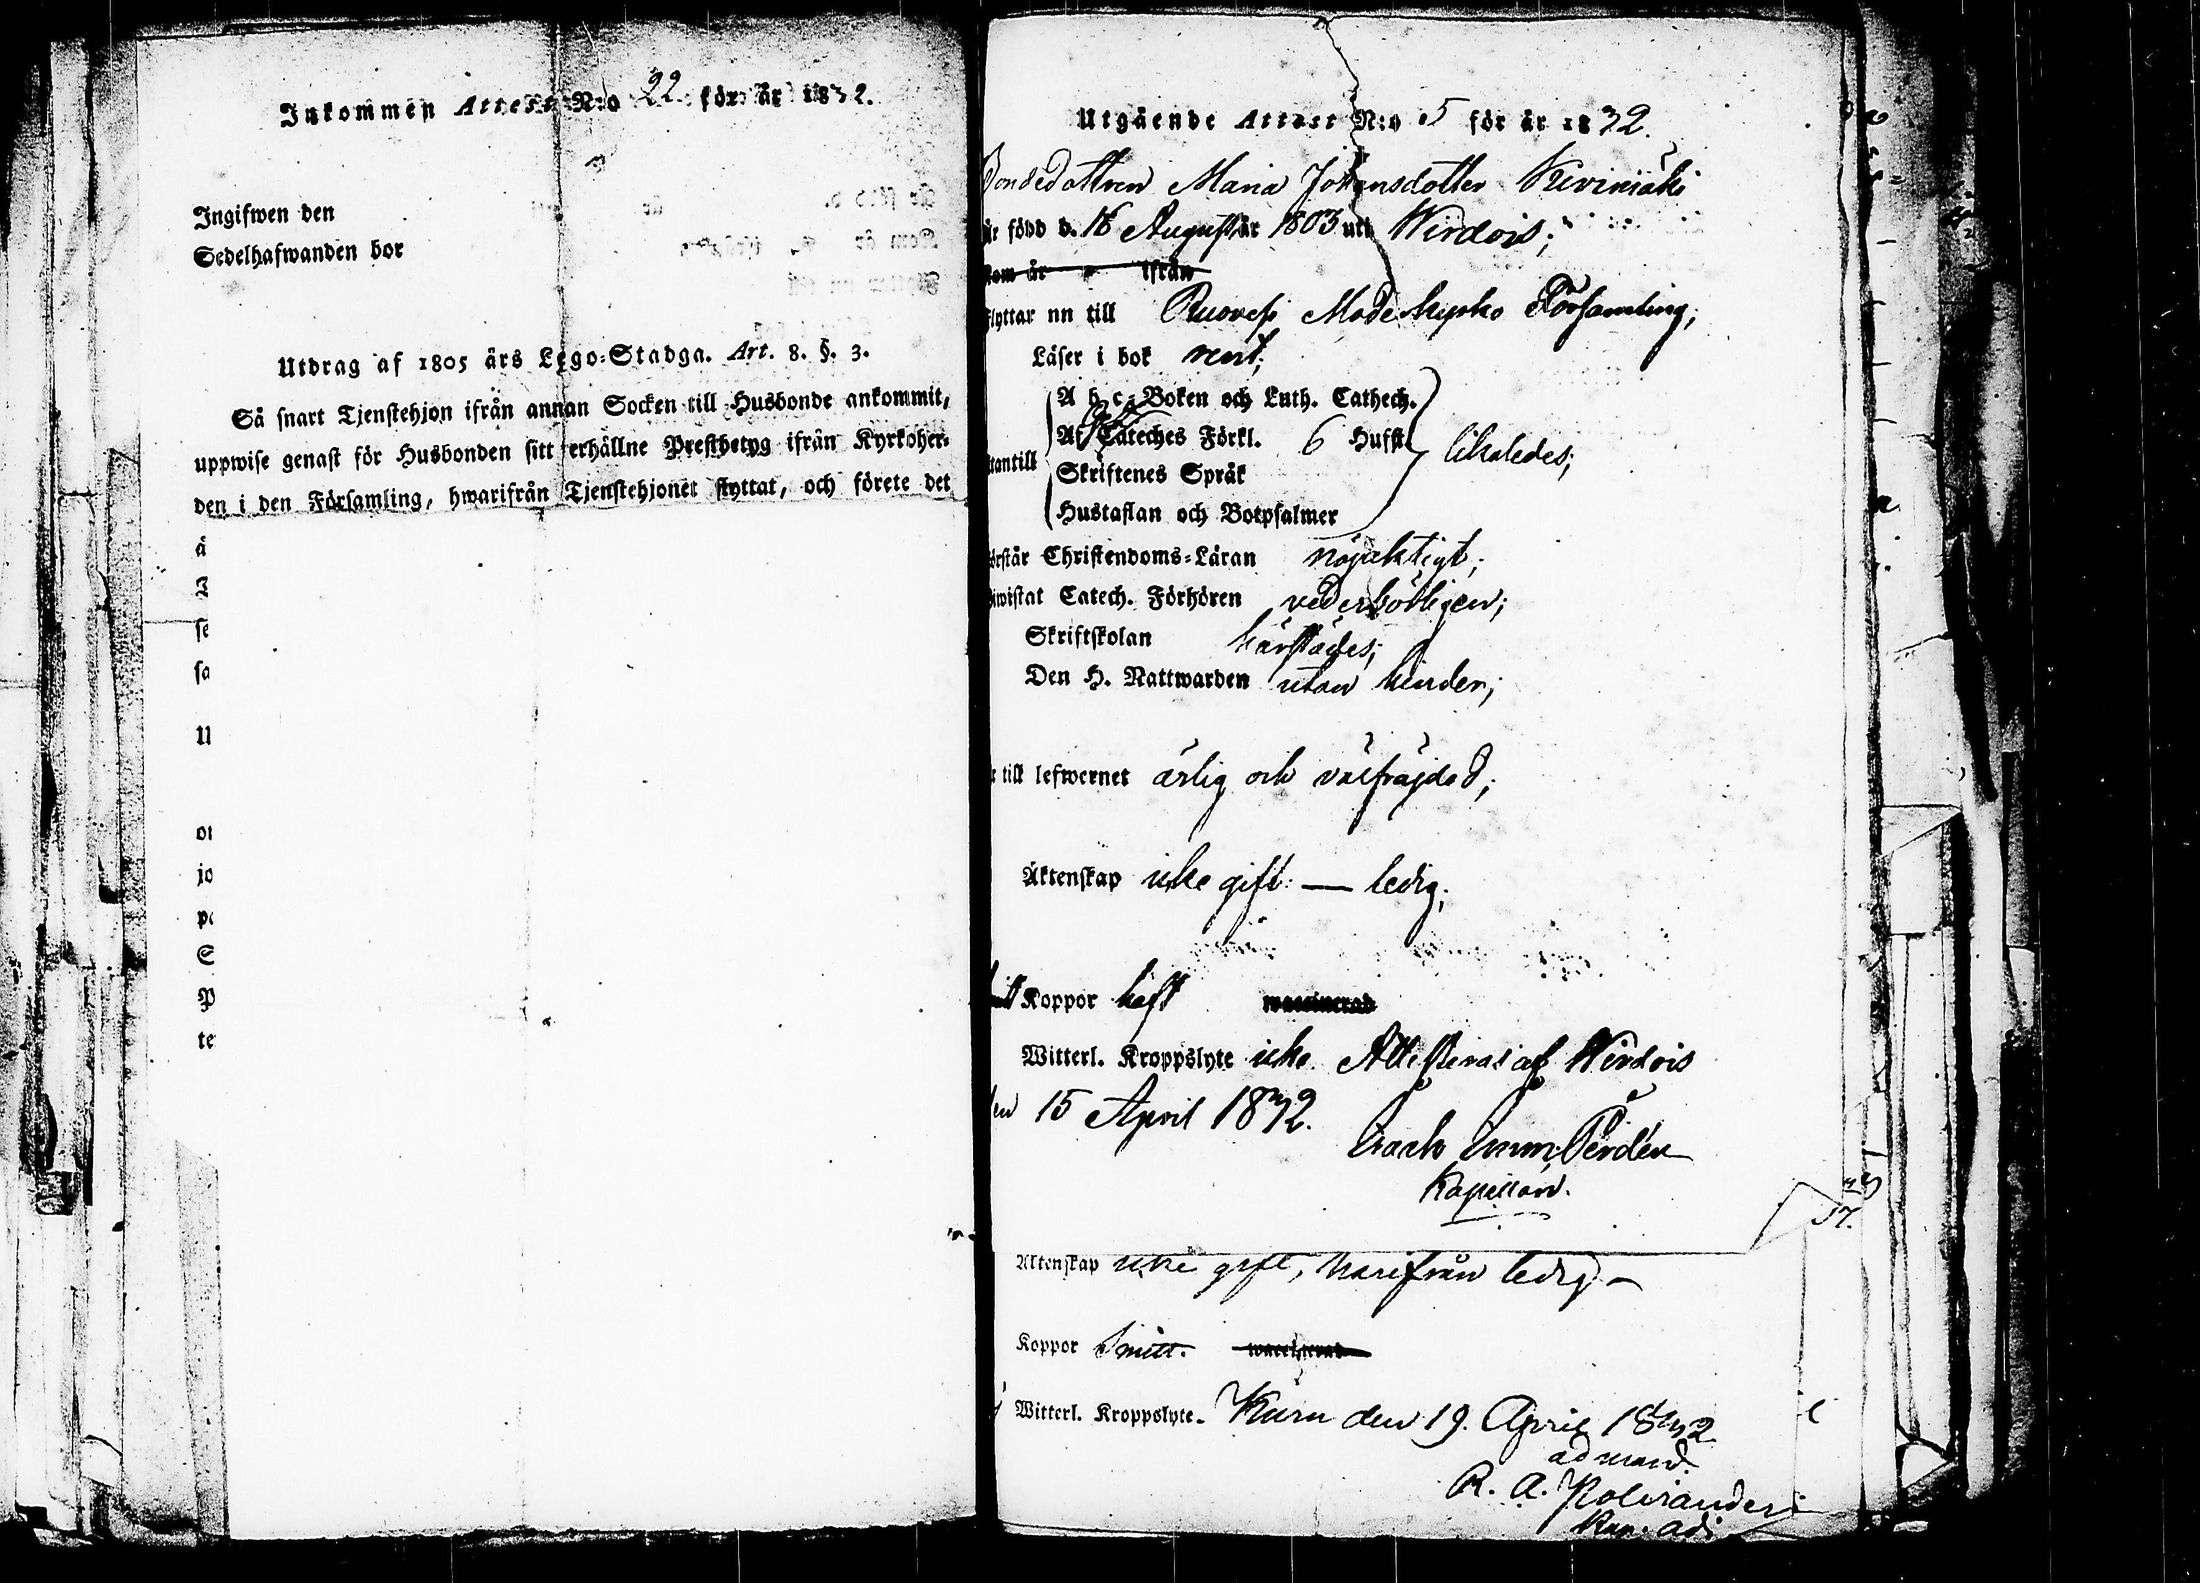 Inkommen Attest N:o 22 för år 1832.
Ingifwen den
Sedelhafwanden bor
Utdrag af 1805 års Lego-Stadga. Art. 8. §. 3.
Så snart Tjenstehjon ifrån annan Socken till Husbonde ankommit,
uppwise genast för Husbonden sitt erhållne Prestbetyg ifrån Kyrkoher-
den i den Församling, hwarifrån Tjenstehjonet flyttat, och förete det
Utgående Attest N:o 5 för år 1832.
Bondedottren Maria Johansdotter Kivimäki
är född d. 16 August år 1803 uti Wirdois;
kom år ifrån
flyttar nu till Ruovesi Moderkyrko Församling;
Läser i bok rent;
A b c-Boken och Luth. Cathech.
Af Cateches Förkl. 6 Hufst.
utantill likaledes;
Skriftenes Språk
Hustaflan och Botpsalmer
förstår Christendoms-Läran nöjaktigt;
biwistat Catech. Förhören vederbörligen;
Skriftskolan härstädes;
Den H. Nattwarden utan hinder;
är till lefwernet ärlig och välfräjdad;
Äktenskap icke gift — ledig;
Koppor haft waccinerad
Witterl. Kroppslyte icke. Attesteras af Wirdois
den 15 April 1832.
Isach Imm. Perdén
Kapellan.
Äktenskap icke gift, härifrån ledig –
Koppor Smitt. waccinerad
Witterl. Kroppslyte. Kuru den 19. April 1832
ad mand.
R. A.